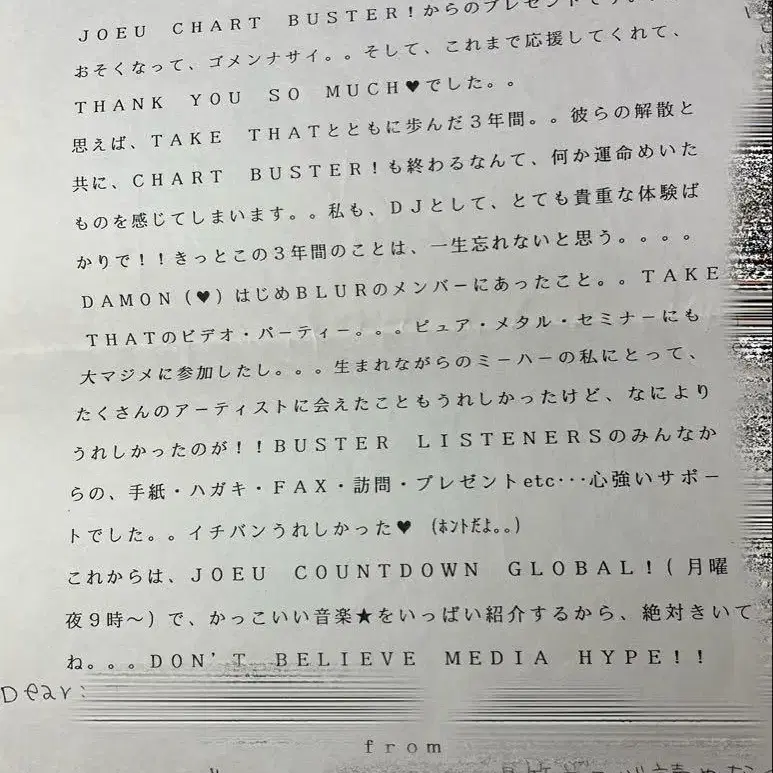 JOEU CHART BUSTER!からのプレゼントです。
おそくなって、ゴメンナサイ。。そして、これまで応援してくれて、
THANK YOU SO MUCH♥でした。。
思えば、TAKE THATとともに歩んだ3年間。。彼らの解散と
共に、CHART BUSTER!も終わるなんて、何か運命めいた
ものを感じてしまいます。。私も、DJとして、とても貴重な体験ば
かりで!!きっとこの3年間のことは、一生忘れないと思う。。。。
DAMON(♥)はじめBLURのメンバーにあったこと。。TAKE
THATのビデオ・パーティー。。。ピュア・メタル・セミナーにも
大マジメに参加したし。。。生まれながらのミーハーの私にとって、
たくさんのアーティストに会えたこともうれしかったけど、なにより
うれしかったのが!!BUSTER LISTENERSのみんなか
らの、手紙・ハガキ・FAX・訪問・プレゼントetc･･･心強いサポー
トでした。。イチバンうれしかった♥ (ﾎﾝﾄだよ｡｡)
これからは、JOEU COUNTDOWN GLOBAL!(月曜
夜9時~)で、かっこいい音楽★をいっぱい紹介するから、絶対きいて
ね。。。DON'T BELIEVE MEDIA HYPE!!
Dear:
from